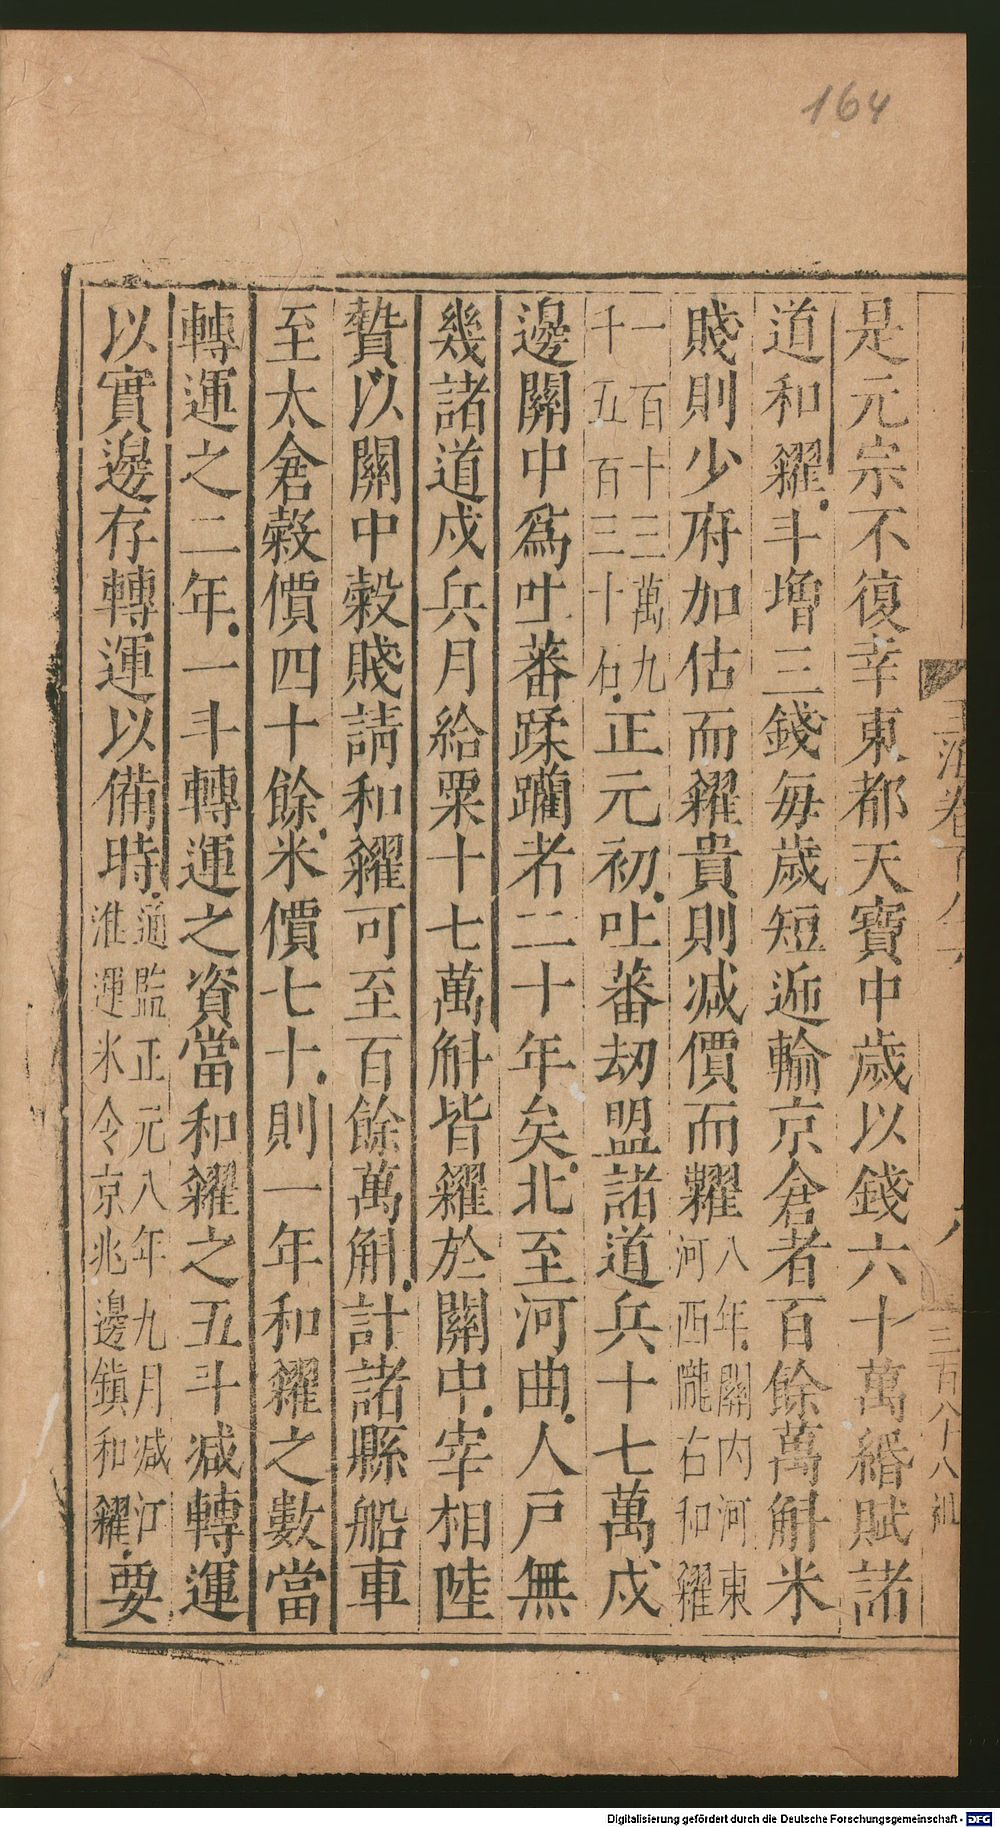 164
是元宗不復幸東都天寶中歲以錢六十萬緡賦諸
道和糴斗增三錢每歲短遞輸京倉者百餘萬斛米
賤則少府加估而糴貴則減價而糶八年關內河東
河西隴右和糴
一百十三萬九
千五百三十石正元初吐蕃刼盟諸道兵十七萬戍
邊關中為吐蕃蹂躪者二十年矣北至河曲人戶無
幾諸道戍兵月給粟十七萬斛皆糴於關中宰相陸
贄以關中穀賤請和糴可至百餘萬斛計諸縣船車
至太倉穀價四十餘米價七十則一年和糴之數當
轉運之二年一斗轉運之資當和糴之五斗減轉運
以實邊存轉運以備時通監正元八年九月減江
淮運米令京兆邊鎮和糴要
玉海卷百八十
三百八十八
Digitalisierung gefördert durch die Deutsche Forschungsgemeinschaft - DFG